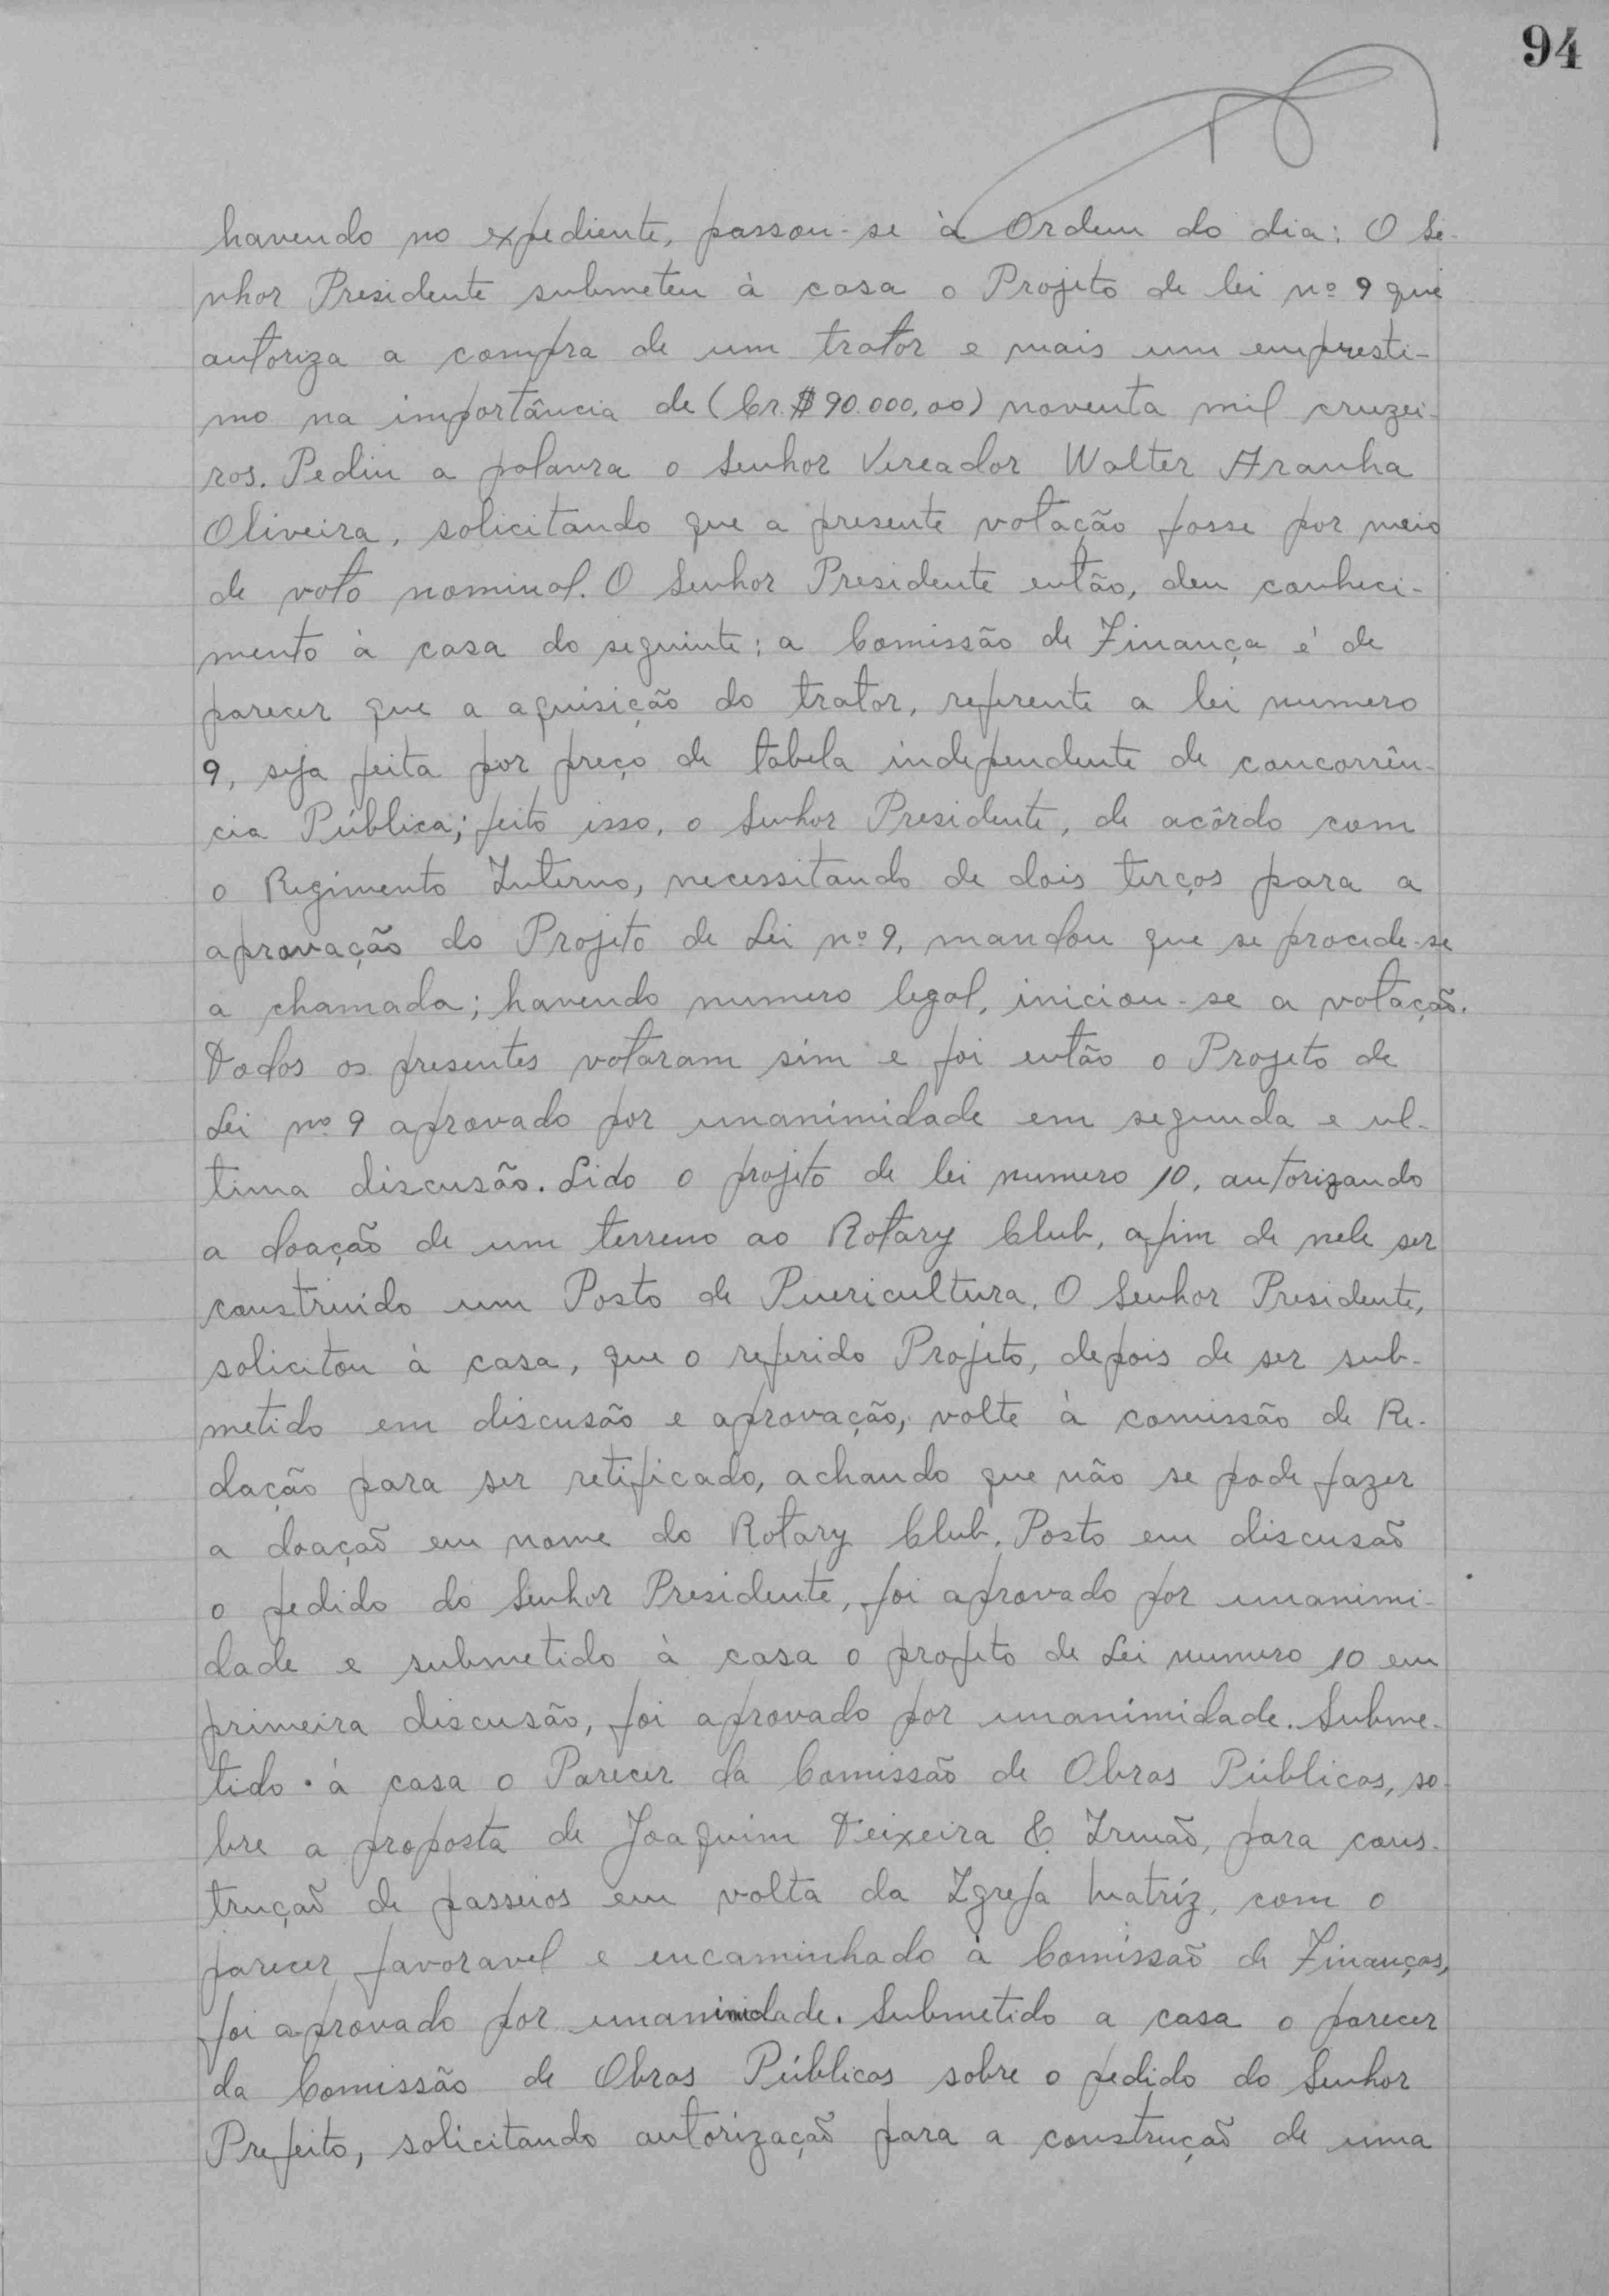 94
havendo no expediente, passou-se à Ordem do dia: O Se-
nhor Presidente submeteu à casa o Projeto de lei nº 9 que
autoriza a compra de um trator e mais um empresti-
mo na importância de (Cr.$ 90.000,00) noventa mil cruzei-
ros. Pediu a palavra o Senhor Vereador Walter Aranha
Oliveira, solicitando que a presente votação fosse por meio
de voto nominal. O Senhor Presidente então, deu conheci-
mento à casa do seguinte: a Comissão de Finança é de
parecer que a aquisição do trator, referente a lei numero
9, seja feita por preço de tabela independente de concorrên-
cia Pública; feito isso, o Senhor Presidente, de acôrdo com
o Regimento Interno, necessitando de dois terços para a
aprovação do Projeto de Lei nº 9, mandou que se procede-se
a chamada; havendo numero legal, iniciou-se a votação.
Todos os presentes votaram sim e foi então o Projeto de
Lei nº 9 aprovado por unanimidade em segunda e ul-
tima discusão. Lido o projeto de lei numero 10, autorizando
a doação de um terreno ao Rotary Club, afim de nele ser
construído um Posto de Puericultura. O Senhor Presidente,
solicitou à casa, que o referido Projeto, depois de ser sub-
metido em discusão e aprovação, volte à comissão de Re-
dação para ser retificado, achando que não se pode fazer
a doação em nome do Rotary Club. Posto em discusão
o pedido do Senhor Presidente, foi aprovado por unanimi-
dade e submetido à casa o projeto de Lei numero 10 em
primeira discusão, foi aprovado por unanimidade. Subme-
tido à casa o Parecer da Comissão de Obras Públicas, so-
bre a proposta de Joaquim Teixeira & Irmão, para cons-
trução de passeios em volta da Igreja Matríz, com o
parecer favoravel e encaminhado à Comissão de Finanças,
foi aprovado por unanimidade. Submetido a casa o parecer
da Comissão de Obras Públicas sobre o pedido do Senhor
Prefeito, solicitando autorização para a construção de uma